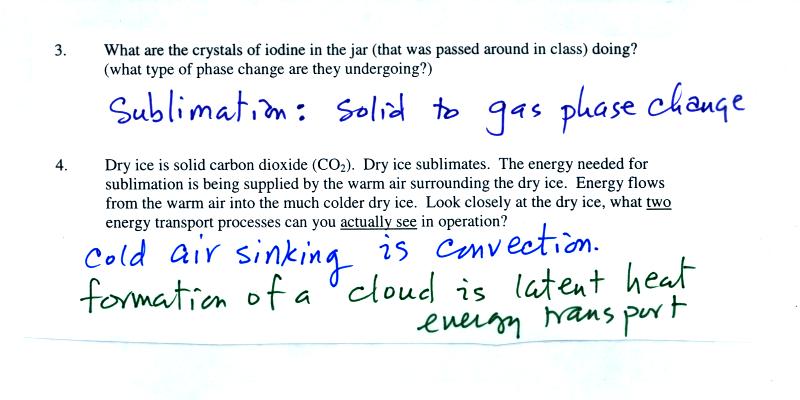 3. What are the crystals of iodine in the jar (that was passed around in class) doing?
(what type of phase change are they undergoing?)
Sublimation: solid to gas phase change
4. Dry ice is solid carbon dioxide (CO₂). Dry ice sublimates. The energy needed for
sublimation is being supplied by the warm air surrounding the dry ice. Energy flows
from the warm air into the much colder dry ice. Look closely at the dry ice, what two
energy transport processes can you actually see in operation?
cold air sinking is convection.
formation of a cloud is latent heat
energy transport